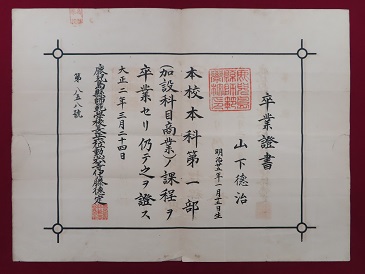 卒業證書
山下德治
明治廿五年一月十五日生
本校本科第一部
(加設科目商業)ノ課程ヲ
卒業セリ仍テ之ヲ證ス
大正二年三月二十四日
鹿兒島縣師範學校長正六位勳六等伊藤德定
第八五八號